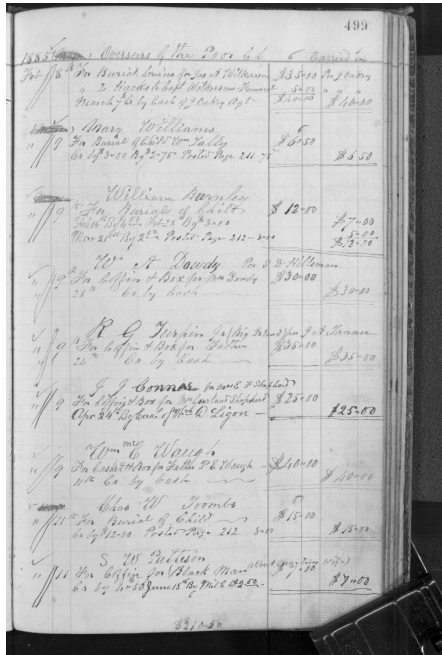 499
1885 Overseers of the Poor 6 Carried on
Feb 8 For Burial Services for Jas A Wilkerson $35=00 Pd J Oakey
" 2 Hacks to Capt Wilkersons Funeral 5=00 " "
March 7 Cr by Cash of J Oakey Agt $40=00 $40=00
Mary Williams
" 9 For Burial of Child Wm Tally $6=50
$6.50
William Burnley
" 9 For Burial of Child $12=00
$7=00
5=00
Mar 21st By 2 Posted Page 212 $12=00
W A Dowdy Per S D Hillsman
" 9 For Coffin & Box for Mrs Dowdy $30=00
28th Cr by Cash $30=00
R G Turpin
" 9 For Coffin & Box for Father $35=00
Cr by Cash $35=00
J J Connor for Mrs E F Shepherd
" 9 For Coffin & Box for Mr Shepherd $25=00
Apr 24th By Cash of Wm D Ligon $25=00
Wm C Waugh
" 9 For Casket & Box for Father P E Waugh $40=00
11th Cr by Cash $40=00
Chas W Toombs
" 11 For Burial of Child $15=00
Cr by 12=00 Posted Page 212 3=00 $15=00
S W Patteson
" 11 For Coffin for Black Man $7=00
Cr by 4=50 June 13th By $2.50 $7=00
$210.50